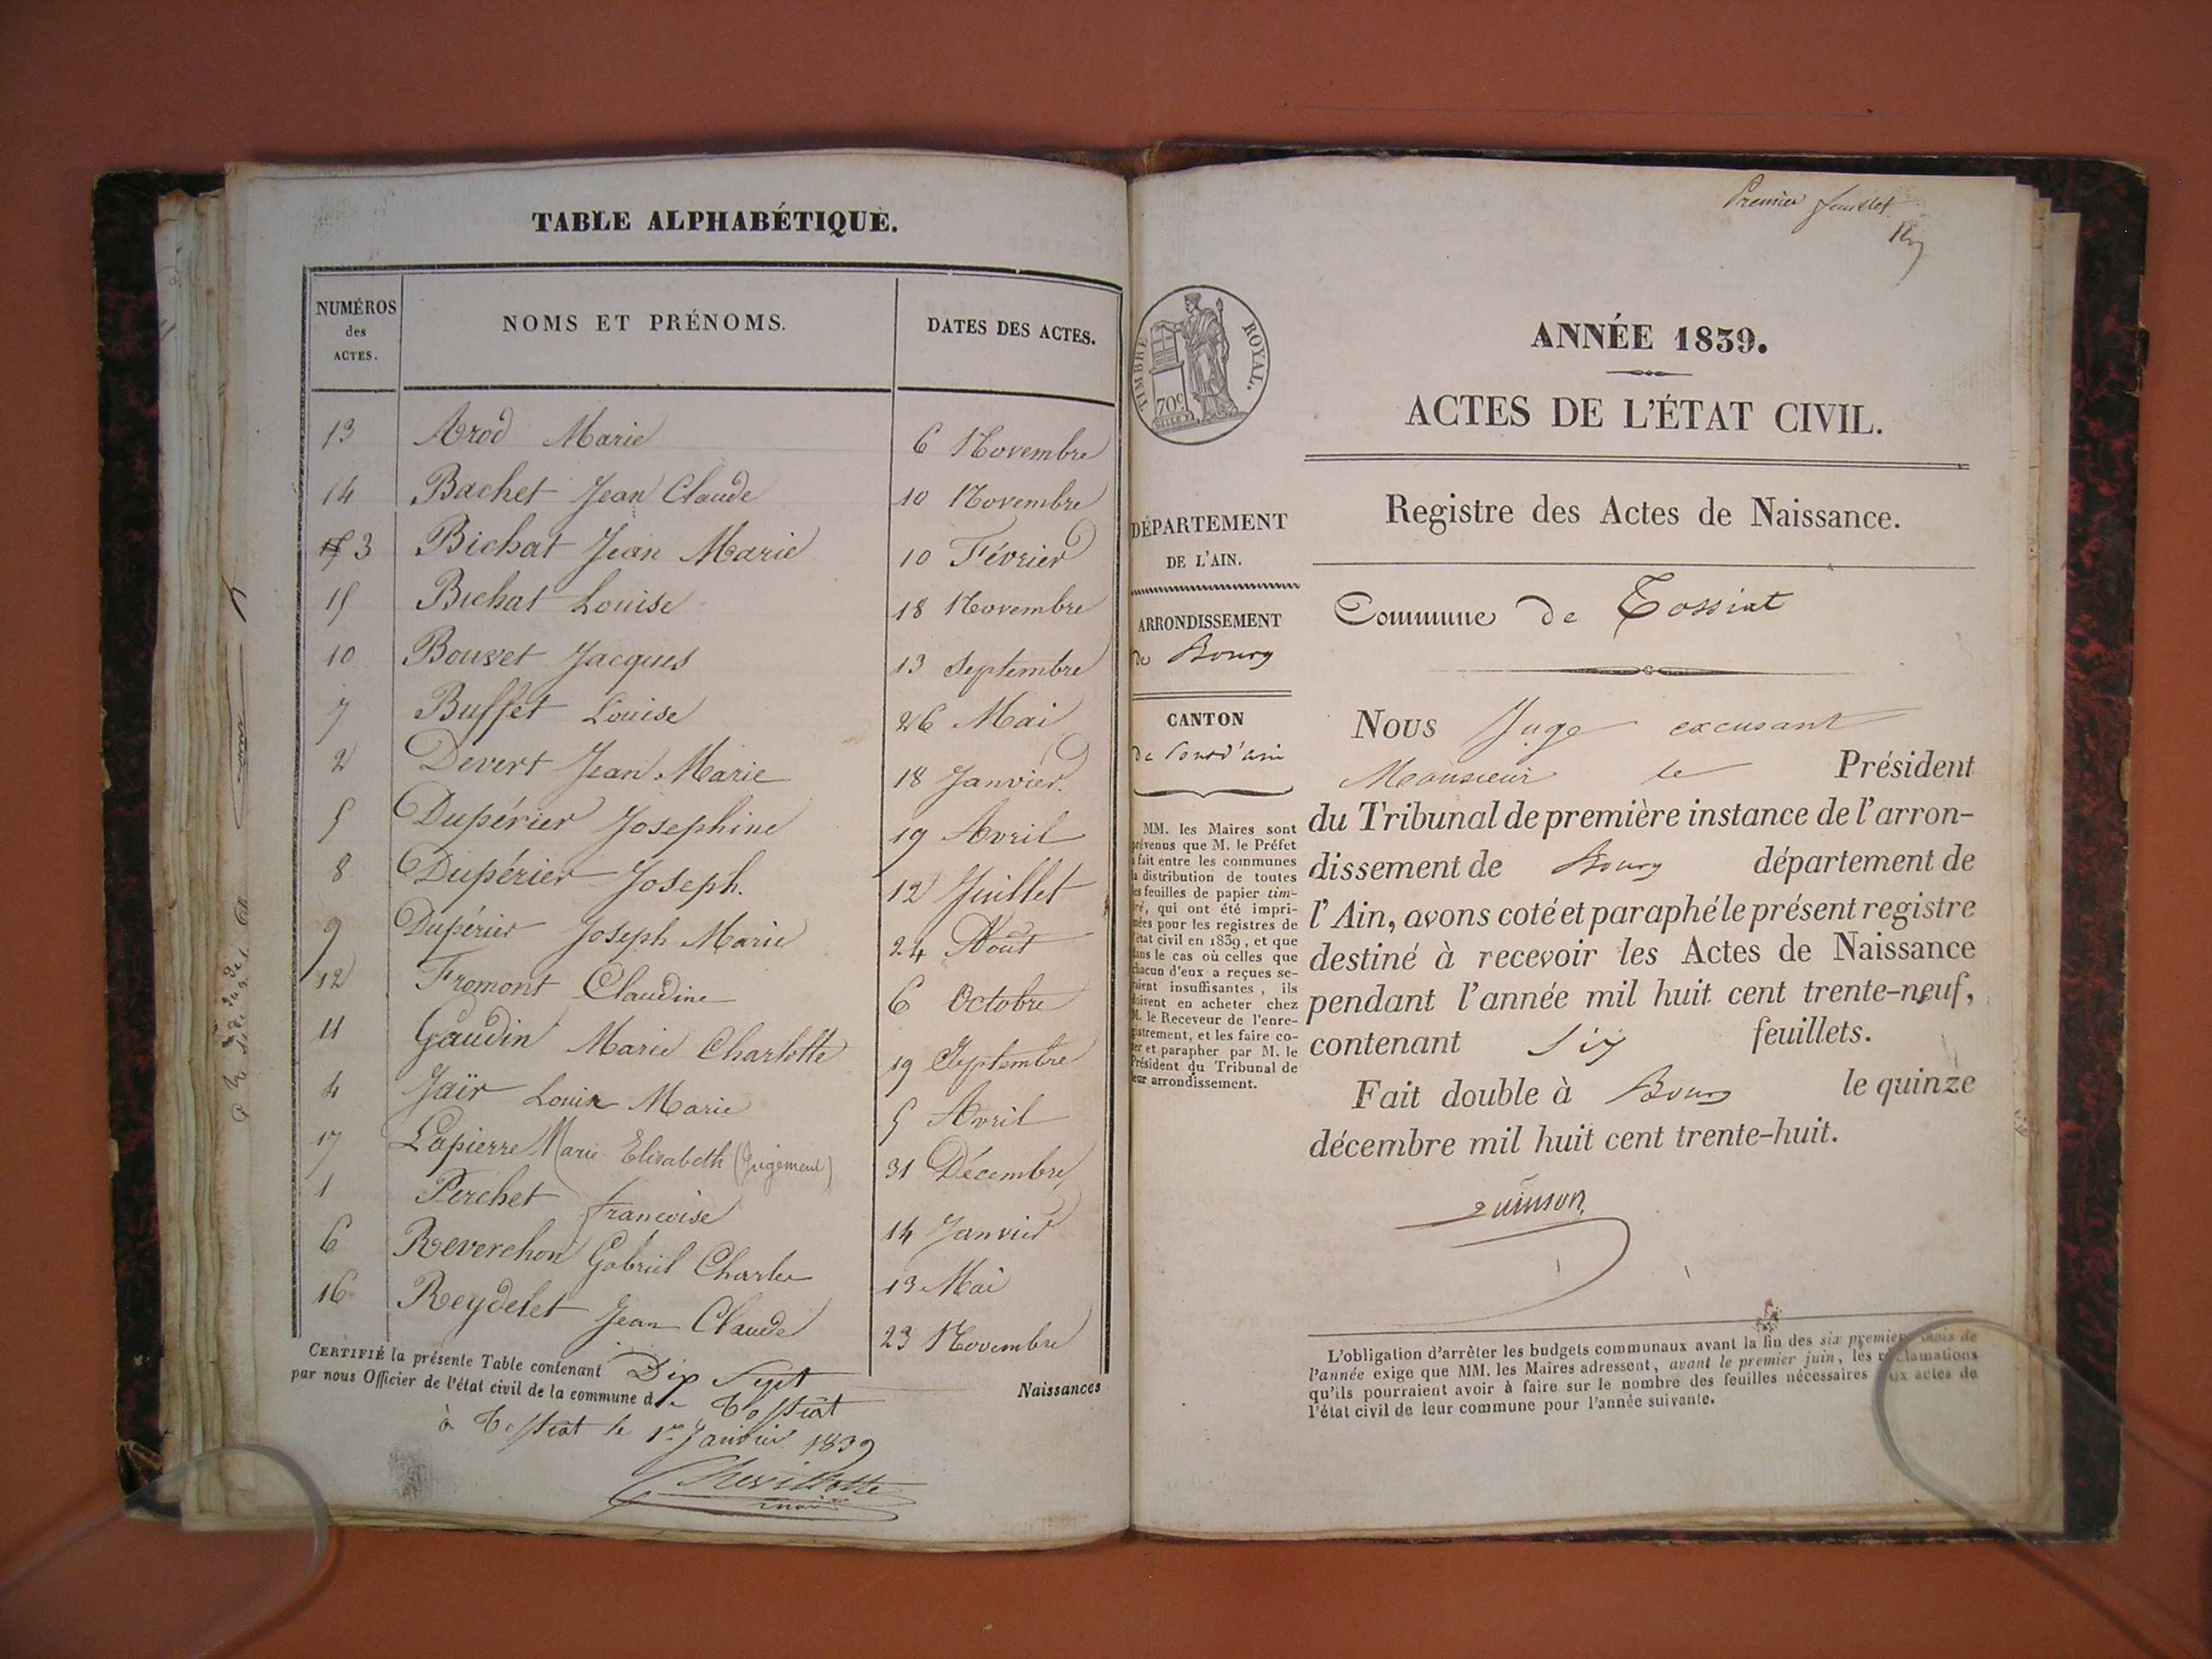 TABLE ALPHABÉTIQUE.
NUMÉROS
des
ACTES.
NOMS ET PRÉNOMS.
DATES DES ACTES.
13 Arod Marie 6 Novembre
14 Bachet Jean Claude 10 Novembre
3 Bichat Jean Marie 10 Février
15 Bichat Louise 18 Novembre
10 Bouvet Jacques 13 Septembre
7 Buffet Louise 26 Mai
2 Devert Jean Marie 18 Janvier
5 Dupérier Josephine 19 Avril
8 Dupérier Joseph. 12 Juillet
9 Dupérier Joseph Marie 24 Août
12 Fromont Claudine 6 Octobre
11 Gaudin Marie Charlotte 19 Septembre
4 Jaïr Louis Marie 5 Avril
17 Lapierre Marie Elisabeth (Jugement) 31 Décembre
1 Perchet francoise 14 Janvier
6 Reverchon Gabriel Charles 13 Mai
16 Reydelet Jean Claude 23 Novembre
CERTIFIÉ la présente Table contenant Dix Sept Naissances
par nous Officier de l'état civil de la commune de Tossiat
à Tossiat le 1er Janvier 1839
Premier feuillet
TIMBRE ROYAL.
70c
ANNÉE 1839.
ACTES DE L'ÉTAT CIVIL.
Registre des Actes de Naissance.
Commune de Tossiat
DÉPARTEMENT
DE L'AIN.
ARRONDISSEMENT
de Bourg
CANTON
de Pont d'ain
MM. les Maires sont
prévenus que M. le Préfet
a fait entre les communes
la distribution de toutes
les feuilles de papier tim-
bré, qui ont été impri-
mées pour les registres de
l'état civil en 1839, et que
dans le cas où celles que
chacun d'eux a reçues se-
raient insuffisantes, ils
doivent en acheter chez
M. le Receveur de l'enre-
gistrement, et les faire co-
ter et parapher par M. le
Président du Tribunal de
leur arrondissement.
Nous Juge excusant
Monsieur le Président
du Tribunal de première instance de l'arron-
dissement de Bourg département de
l'Ain, avons coté et paraphé le présent registre
destiné à recevoir les Actes de Naissance
pendant l'année mil huit cent trente-neuf,
contenant Six feuillets.
Fait double à Bourg le quinze
décembre mil huit cent trente-huit.
Quinson
L'obligation d'arrêter les budgets communaux avant la fin des six premiers mois de
l'année exige que MM. les Maires adressent, avant le premier juin, les réclamations
qu'ils pourraient avoir à faire sur le nombre des feuilles nécessaires aux actes de
l'état civil de leur commune pour l'année suivante.